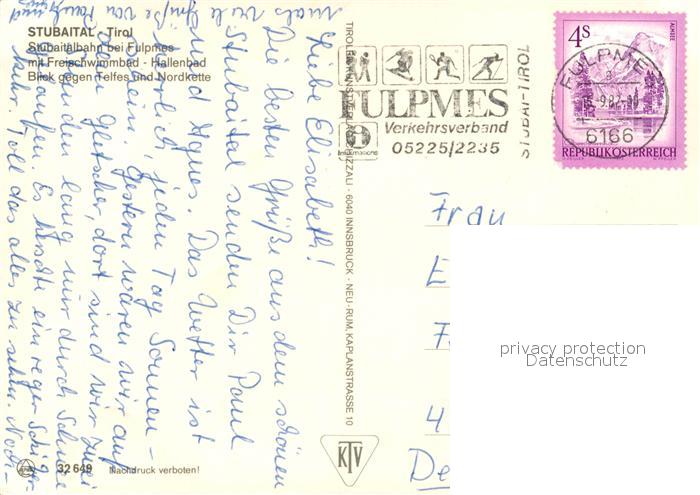 STUBAITAL - Tirol
Stubaitalbahn bei Fulpmes
mit Freischwimmbad - Hallenbad
Blick gegen Telfes und Nordkette
Liebe Elisabeth!
Die besten Grüße aus dem schönen
Stubaital senden Dir Paul
und Agnes. Das Wetter ist
herrlich, jeden Tag Sonnen-
schein, gestern waren wir auf
dem Gletscher, dort sind wir zwei
Stunden lang nur durch Schnee
gelaufen. Es herrscht ein reger Schiver-
kehr. Toll das alles zu sehen. Noch-
mals viele Grüße von Paul
und
32 649
Nachdruck verboten!
TIROL 6040 INNSBRUCK - NEU-RUM, KAPLANSTRASSE 10
KTV
FULPMES
Verkehrsverband
05225/2235
Informations
STUBAI-TIROL
FULPMES
6166
4S
REPUBLIK ÖSTERREICH
Frau
E
F
4
De
privacy protection
Datenschutz